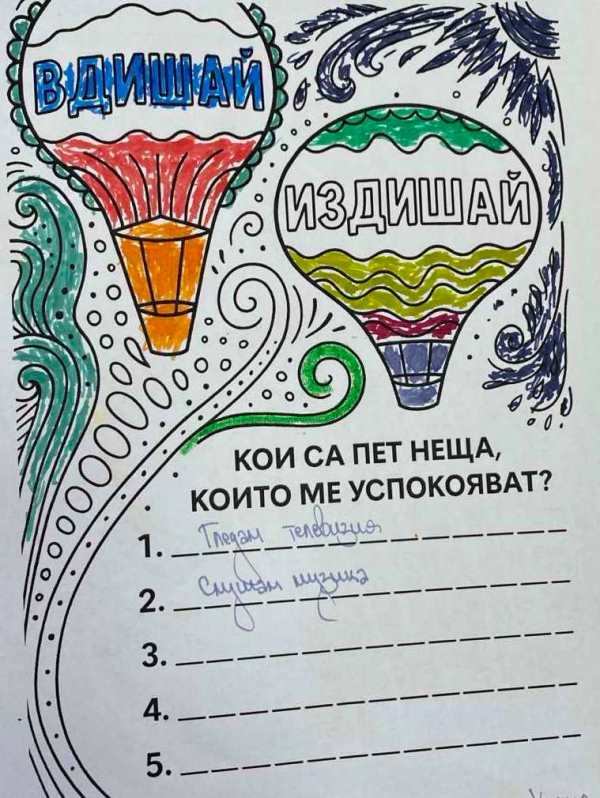 ВДИШАЙ
ИЗДИШАЙ
КОИ СА ПЕТ НЕЩА,
КОИТО МЕ УСПОКОЯВАТ?
1. Гледам телевизия
2. Слушам музика
3.
4.
5.